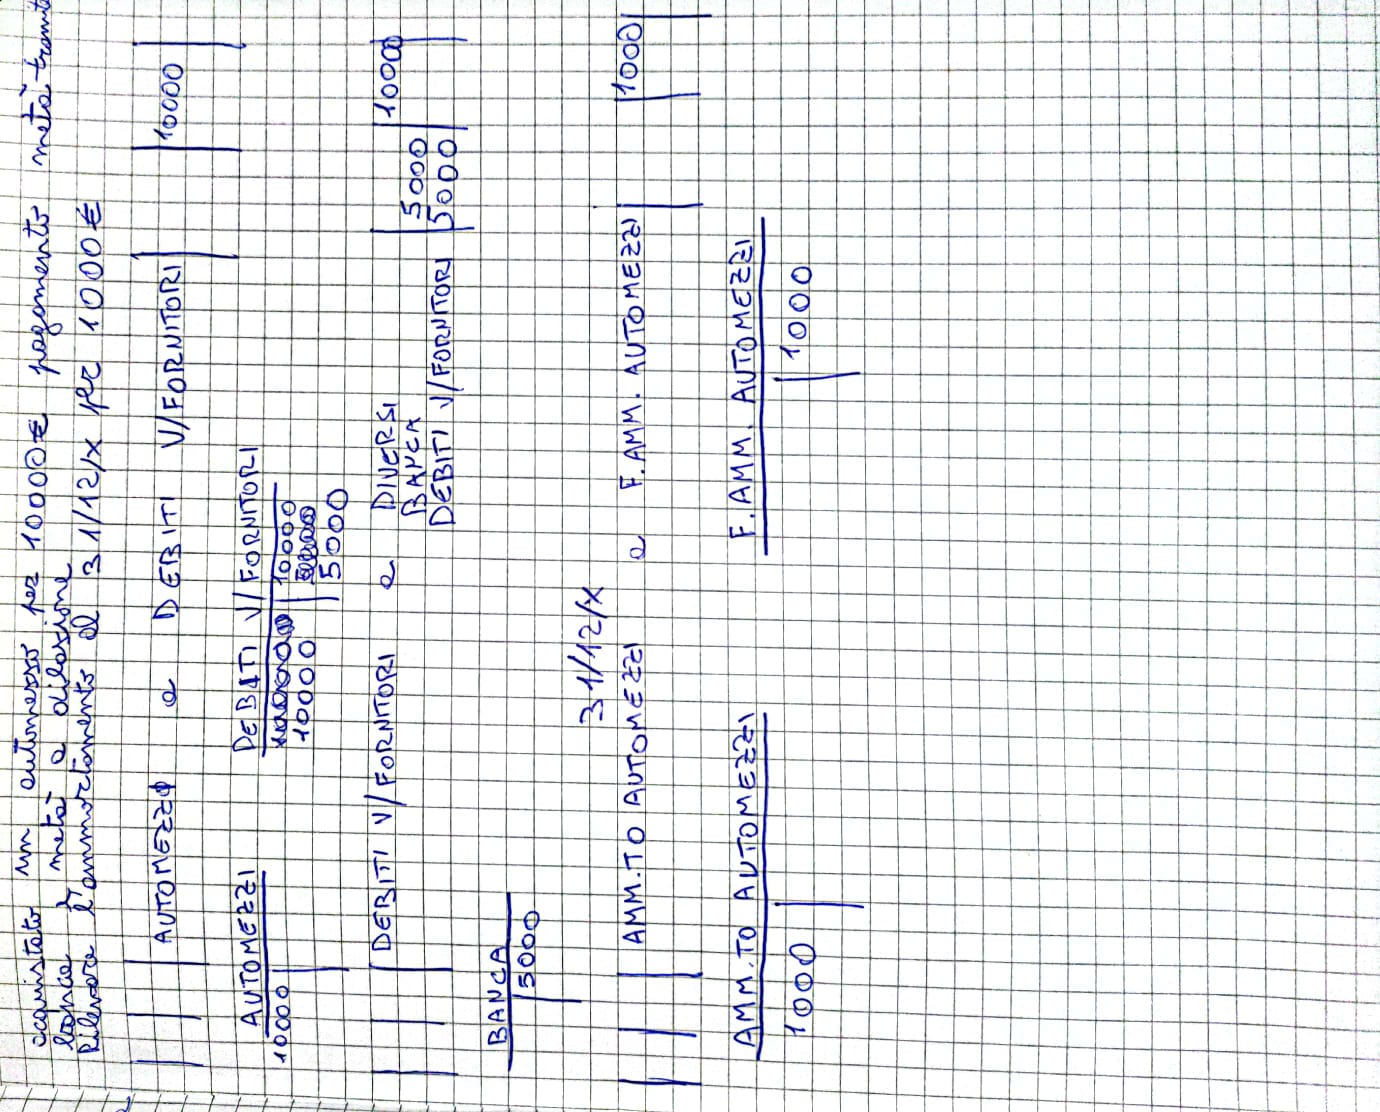 acquistato un automezzo per 10000€ pagamento metà tramite
banca metà a dilazione
Rilevare l'ammortamento al 31/12/X per 1000€
AUTOMEZZO a DEBITI V/FORNITORI 10000
AUTOMEZZI DEBITI V/FORNITORI
10000 10000
10000 5000
DEBITI V/FORNITORI a DIVERSI 10000
BANCA 5000
DEBITI V/FORNITORI 5000
BANCA
5000
31/12/X
AMM.TO AUTOMEZZI a F.AMM. AUTOMEZZI 1000
AMM.TO AUTOMEZZI F.AMM. AUTOMEZZI
1000 1000